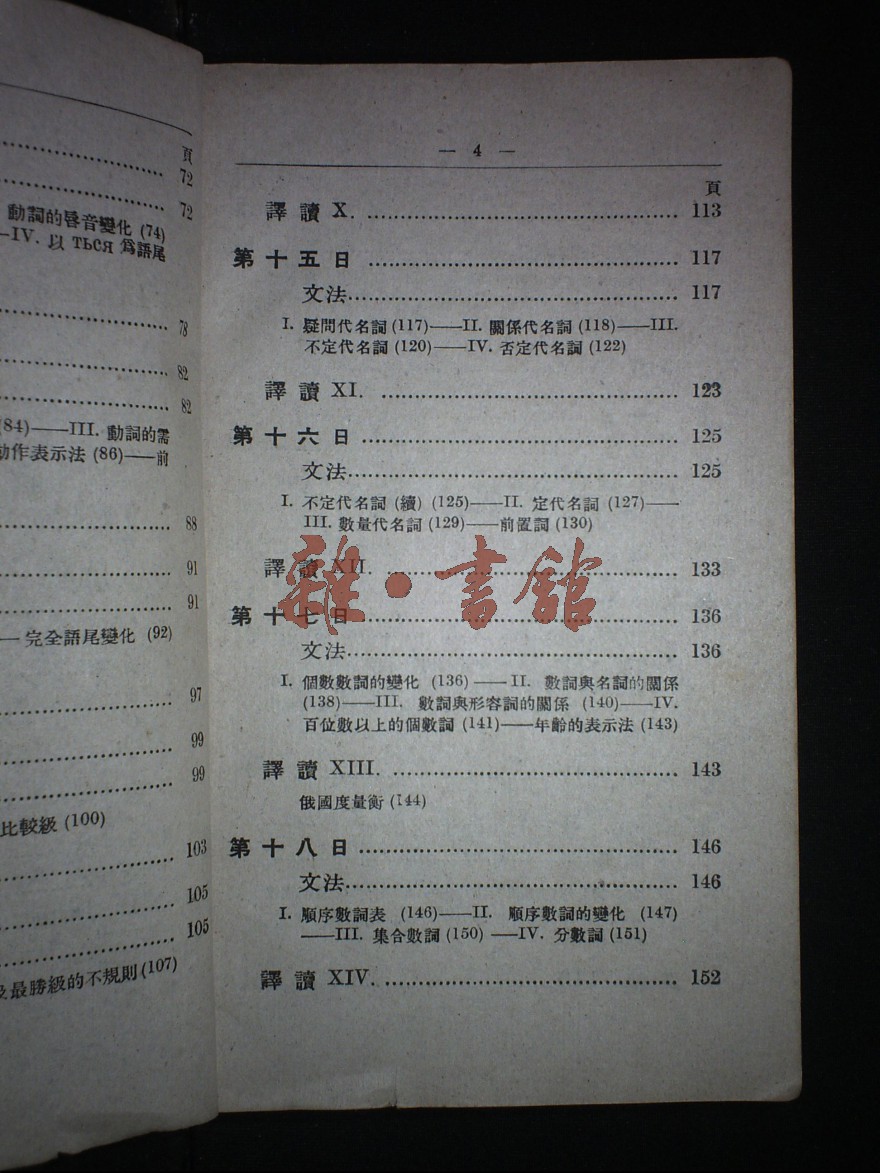 頁
72
72
動詞的唇音變化 (74)
—IV. 以 ться 爲語尾
78
82
82
(84)——III. 動詞的需
動作表示法 (86)——前
88
91
91
— 完全語尾變化 (92)
97
99
99
比較級 (100)
103
105
105
及最勝級的不規則 (107)
— 4 —
頁
譯讀 X. ........ 113
第十五日 ........ 117
文法........ 117
I. 疑問代名詞 (117)——II. 關係代名詞 (118)——III.
不定代名詞 (120)——IV. 否定代名詞 (122)
譯讀 XI. ........ 123
第十六日 ........ 125
文法........ 125
I. 不定代名詞 (續) (125)——II. 定代名詞 (127)——
III. 數量代名詞 (129)——前置詞 (130)
譯讀 XII. ........ 133
雜·書館
第十七日 ........ 136
文法........ 136
I. 個數數詞的變化 (136) ——II. 數詞與名詞的關係
(138)——III. 數詞與形容詞的關係 (140)——IV.
百位數以上的個數詞 (141)——年齡的表示法 (143)
譯讀 XIII. ........ 143
俄國度量衡 (144)
第十八日 ........ 146
文法........ 146
I. 順序數詞表 (146)——II. 順序數詞的變化 (147)
——III. 集合數詞 (150) ——IV. 分數詞 (151)
譯讀 XIV. ........ 152